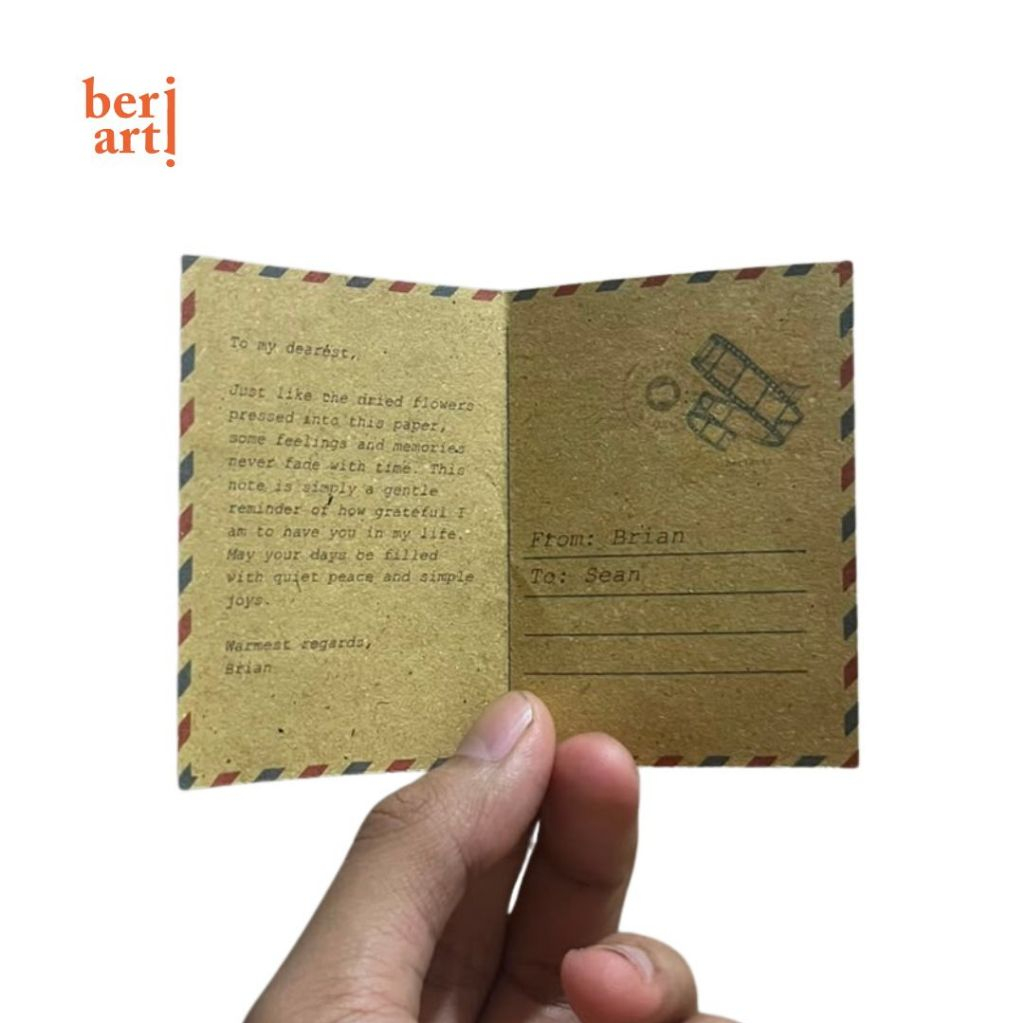 beri
art!
To my dearest,
Just like the dried flowers
pressed into this paper,
some feelings and memories
never fade with time. This
note is simply a gentle
reminder of how grateful I
am to have you in my life.
May your days be filled
with quiet peace and simple
joys.
Warmest regards,
Brian
From: Brian
To: Sean